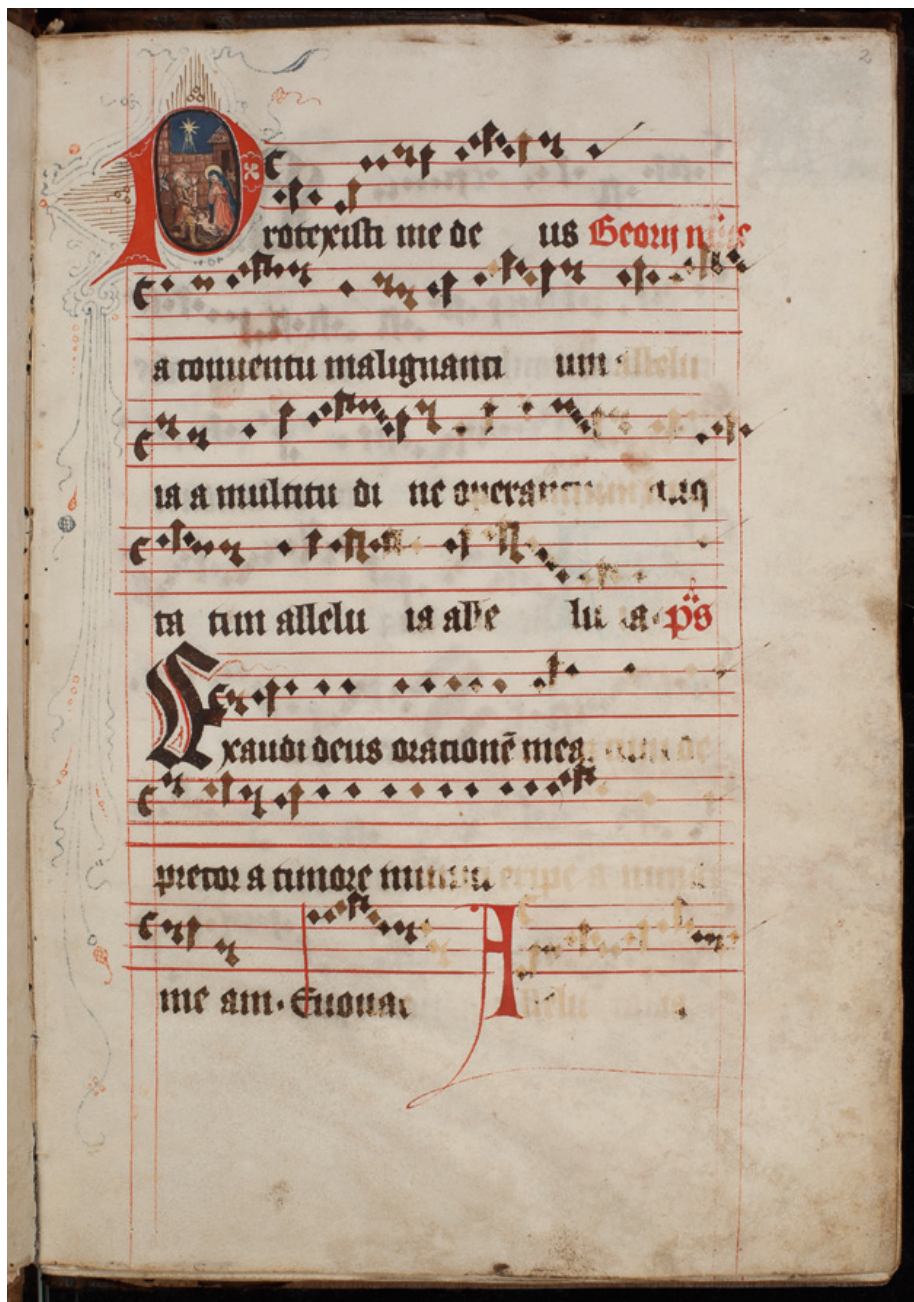 2
Protexisti me de us Georij
a conuentu malignanti um
ia a multitu di ne operanti
ta tim allelu ia alle lu ia. p̄s
Exaudi deus orationē mea cum de
precor a timore inimici eripe a nima
me am. Euouae A